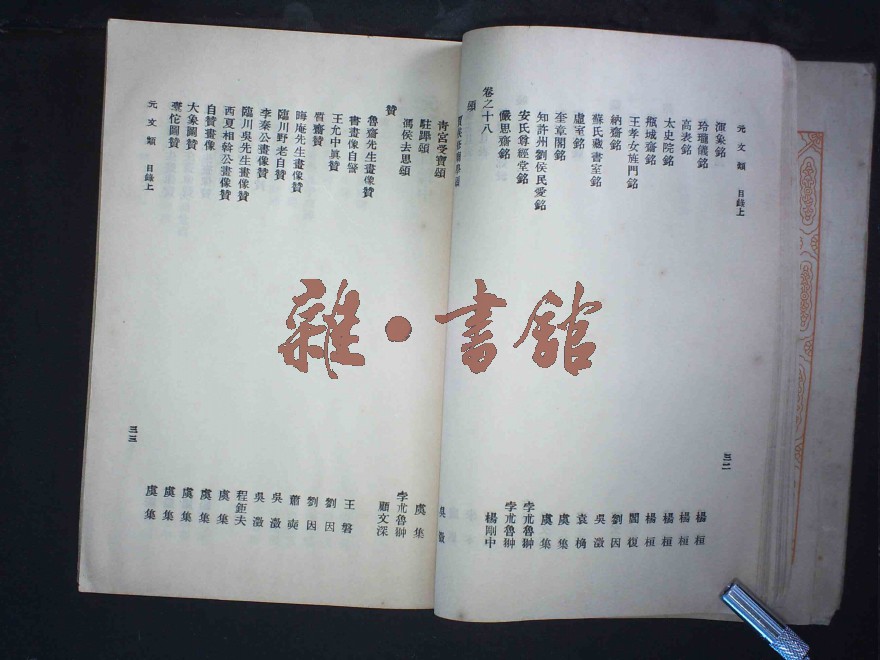 元文類 目錄上
渾象銘 楊桓
玲瓏儀銘 楊桓
高表銘 楊桓
太史院銘 楊桓
甁城齋銘 閻復
王孝女旌門銘 劉因
納齋銘 吳澂
蘇氏藏書室銘 袁桷
虛室銘 虞集
奎章閣銘 虞集
知許州劉侯民愛銘 孛朮魯翀
安氏尊經堂銘 孛朮魯翀
儼思齋銘 楊剛中
卷之十八
頌
吳澂
三二
靑宮受寶頌 虞集
駐蹕頌 孛朮魯翀
馮侯去思頌 顧文深
贊
魯齋先生畫像贊 王磐
書畫像自警 劉因
王允中眞贊 劉因
質齋贊 蕭㪺
晦庵先生畫像贊 吳澂
臨川野老自贊 吳澂
李秦公畫像贊 程鉅夫
臨川吳先生畫像贊 虞集
西夏相斡公畫像贊 虞集
自贊畫像 虞集
大象圖贊 虞集
橐佗圖贊 虞集
元文類 目錄上
三三
雜·書館